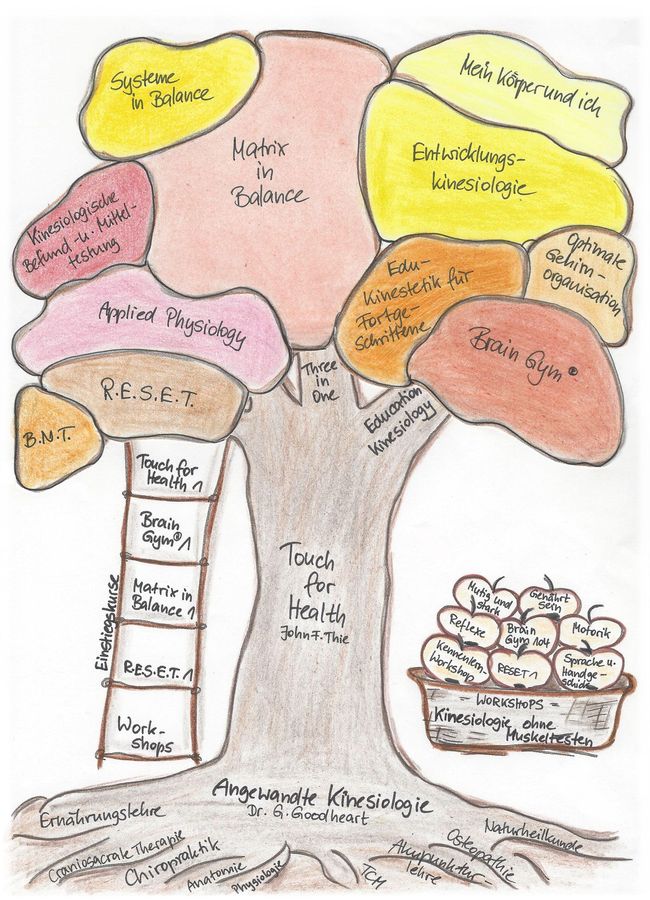 Systeme
in Balance
Matrix
in
Balance
Mein Körper und ich
Entwicklungs-
kinesiologie
Kinesiologische
Befund- u. Mittel-
testung
Applied Physiology
R.E.S.E.T.
B.M.T.
Edu-
Kinestetik für
Fortge-
schrittene
Optimale
Gehirn-
organisation
Brain Gym®
Three
in
One
Education
Kinesiology
Einstiegskurse
Touch for
Health 1
Brain
Gym® 1
Matrix in
Balance 1
R.E.S.E.T. 1
Work-
shops
Touch
for
Health
John F. Thie
Mutig und
stark
Genährt
sein
Reflexe
Brain
Gym 104
Motorik
Kennenlern-
Workshop
RESET 1
Sprache u.
Handge-
schick
WORKSHOPS
Kinesiologie ohne
Muskeltesten
Angewandte Kinesiologie
Dr. G. Goodheart
Ernährungslehre
Craniosacrale Therapie
Chiropraktik
Anatomie
Physiologie
TCM
Akupunktur
lehre
Osteopathie
Naturheilkunde